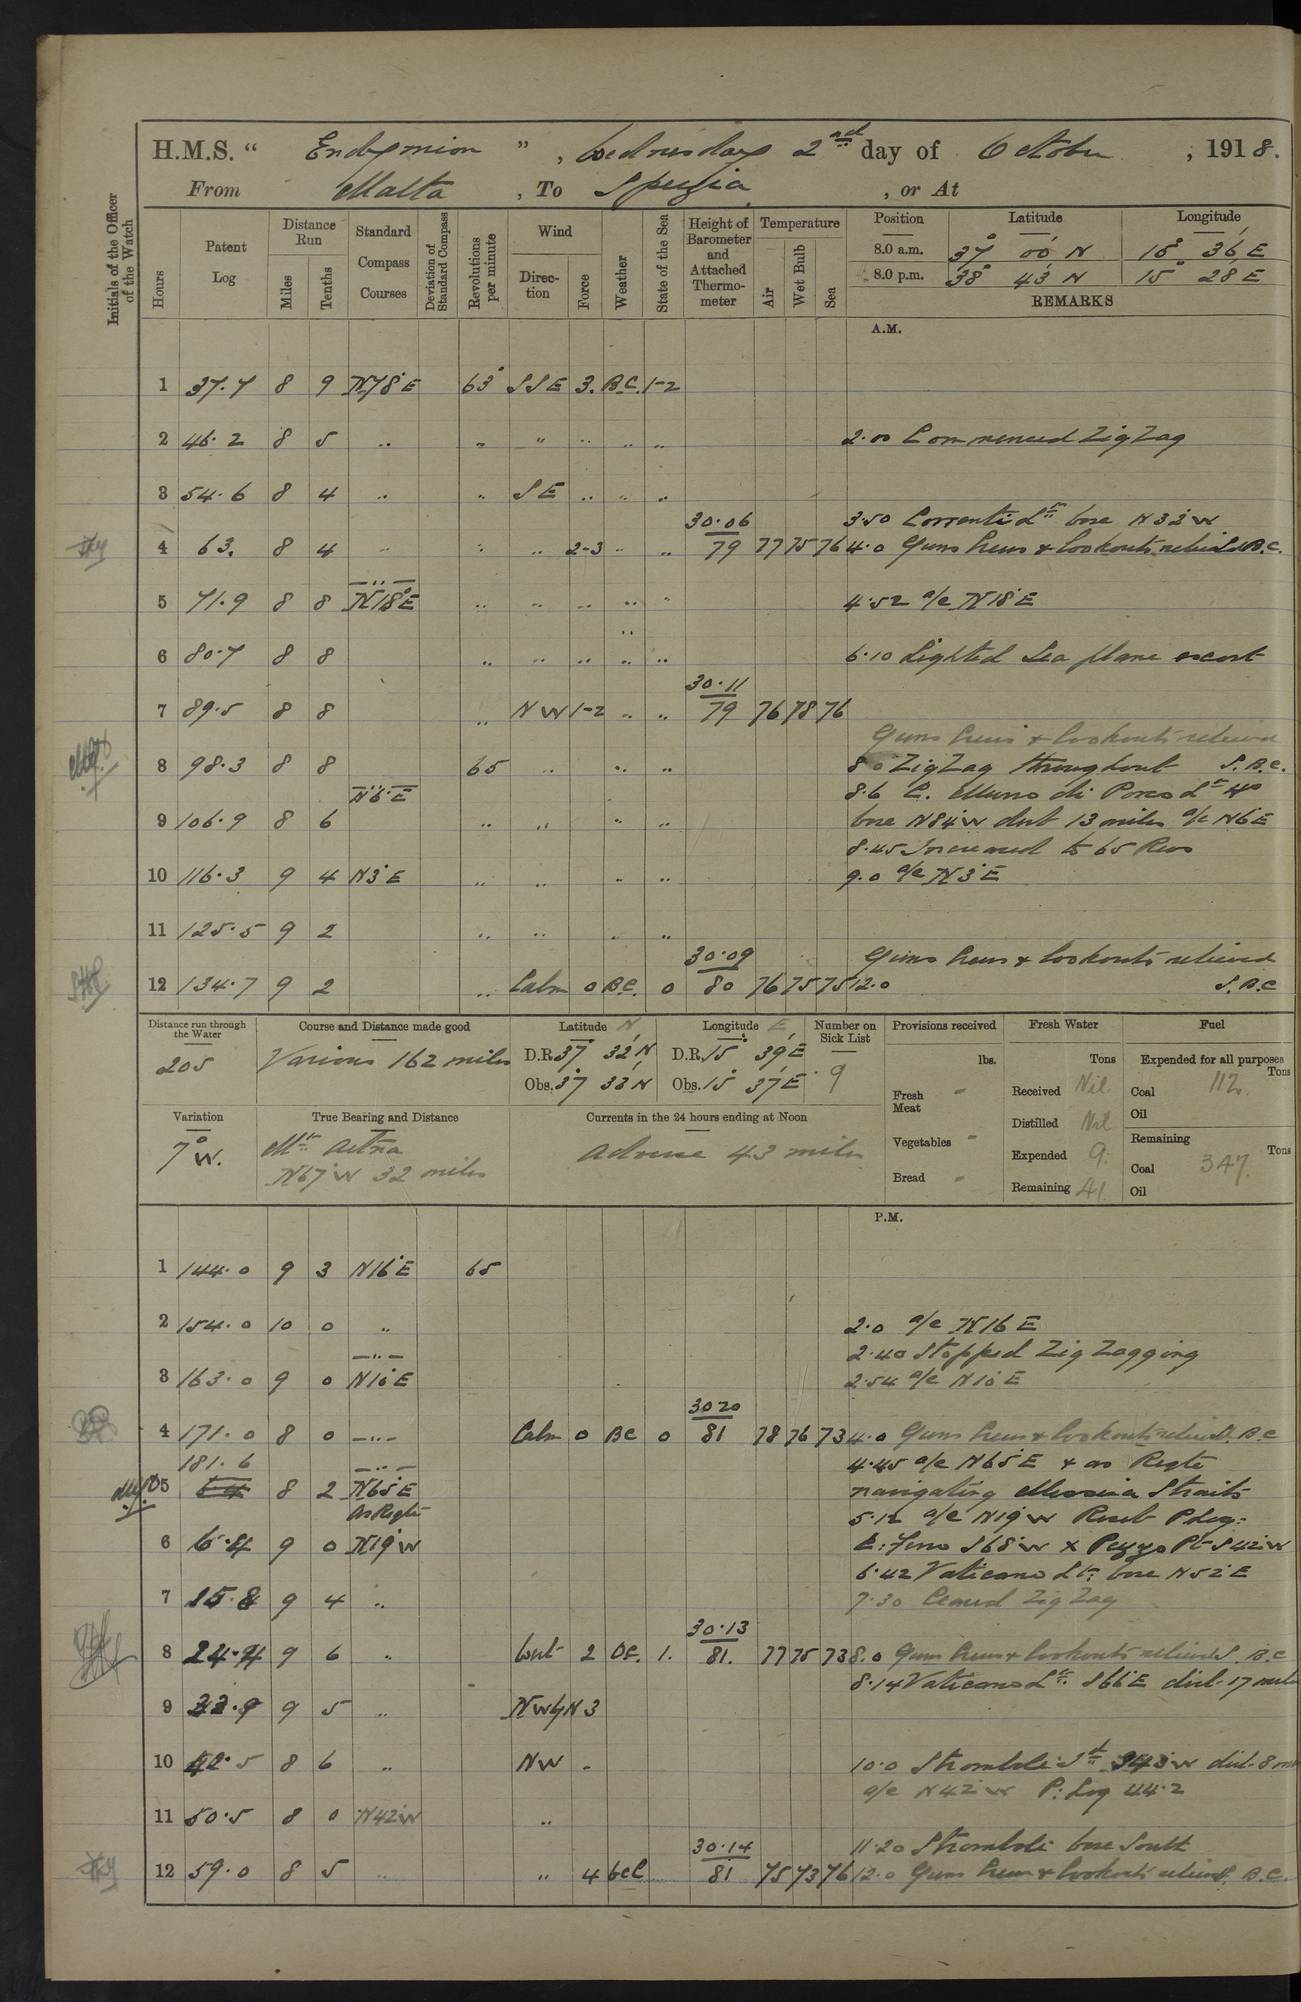 H.M.S. “ Endymion ” , Wednesday 2nd day of October , 1918.
From Malta , To Spezia , or At
Initials of the Officer of the Watch
Hours
Patent Log
Distance Run
Miles
Tenths
Standard Compass Courses
Deviation of Standard Compass
Revolutions per minute
Wind
Direction
Force
Weather
State of the Sea
Height of Barometer and Attached Thermometer
Temperature
Air
Wet Bulb
Sea
Position Latitude Longitude
8.0 a.m. 37° 00' N 15° 36' E
8.0 p.m. 38° 43' N 15° 28' E
REMARKS
A.M.
1 37.7 8 9 N78°E 63 SSE 3. B.C. 1-2
2 46.2 8 5 " " " " " " 2.00 Commenced Zig Zag
3 54.6 8 4 " " SE " " "
30.06 3.50 Correnti Lt bore N32°W
4 63. 8 4 " " " 2-3 " " 79 77 75 76 4.0 Guns Crews & lookouts relieved S.B.C.
5 71.9 8 8 N18°E " " " " " 4.52 a/c N18°E
6 80.7 8 8 " " " " " 6.10 Sighted Sea plane escort
30.11
7 89.5 8 8 " NW 1-2 " " 79 76 78 76
Guns Crews & lookouts relieved
8 98.3 8 8 65 " " " 8.0 Zig Zag throughout S.B.C.
N6°E 8.6 C. Murro di Porco Lt
9 106.9 8 6 " " " " bore N84°W dist 13 miles a/c N6°E
8.45 Increased to 65 Revs
10 116.3 9 4 N3°E " " " " 9.0 a/c N3°E
11 125.5 9 2 " " " "
30.09 Guns Crews & lookouts relieved
12 134.7 9 2 " Calm 0 B.C. 0 80 76 75 75 12.0 S.B.C
Distance run through the Water
205
Course and Distance made good
Various 162 miles
Latitude N
D.R. 37° 32' N
Obs. 37° 33' N
Longitude E
D.R. 15° 39' E
Obs. 15° 37' E
Number on Sick List
9
Provisions received
lbs.
Fresh Meat "
Vegetables "
Bread "
Fresh Water
Tons
Received Nil
Distilled Nil
Expended 9.
Remaining 41
Fuel
Expended for all purposes
Tons
Coal 112.
Oil
Remaining
Tons
Coal 347.
Oil
Variation
7° W.
True Bearing and Distance
Mt Aetna
N67°W 32 miles
Currents in the 24 hours ending at Noon
Adverse 43 miles
P.M.
1 144.0 9 3 N16°E 65
2 154.0 10 0 " 2.0 a/c N16°E
2.40 Stopped Zig Zagging
3 163.0 9 0 N10°E 2.54 a/c N10°E
30 20
4 171.0 8 0 " Calm 0 BC 0 81 78 76 73 4.0 Guns Crews & lookouts relieved S.B.C
181.6 4.45 a/c N65°E & as Reqte
5 8 2 N65°E navigating Messina Straits
As Reqte 5.12 a/c N19°W Reset P Log:
6 6.4 9 0 N19°W S68°W x Pezzo Pt S42°W
6.42 Vaticano Lt: bore N52°E
7 15.8 9 4 " 7.30 Ceased Zig Zag
30.13
8 24.4 9 6 " West 2 81. 77 75 73 8.0 Guns Crews & lookouts relieved S.B.C
8.14 Vaticano Lt: S66°E dist 17 miles
9 33.9 9 5 " NW by N 3
10 42.5 8 6 " NW " 10.0 Stromboli Lt S43°W dist 8
a/c N42°W P: Log 44.2
11 50.5 8 0 N42°W "
30.14 11.20 Stromboli bore South
12 59.0 8 5 " " 4 bcc 81 75 73 76 12.0 Guns Crews & lookouts relieved S.B.C.